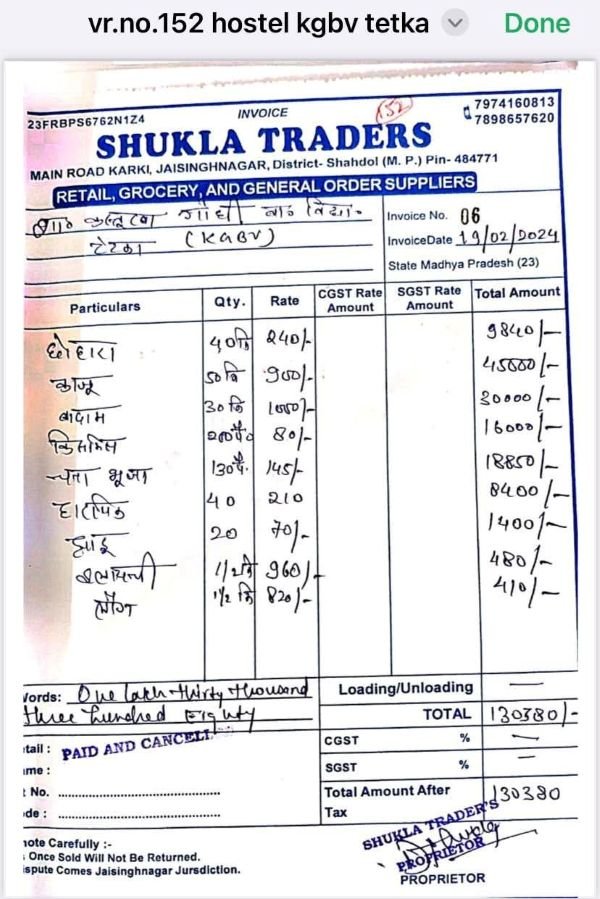 vr.no.152 hostel kgbv tetka Done
152
7974160813
23FRBPS6762N1Z4 INVOICE 7898657620
SHUKLA TRADERS
MAIN ROAD KARKI, JAISINGHNAGAR, District- Shahdol (M. P.) Pin- 484771
RETAIL, GROCERY, AND GENERAL ORDER SUPPLIERS
गाँधी बा० विद्या० Invoice No. 06
टेटका (KGBV) InvoiceDate 19/02/2024
State Madhya Pradesh (23)
Particulars Qty. Rate CGST Rate Amount SGST Rate Amount Total Amount
छोहारा 40कि 240/- 9840/-
काजू 50कि 900/- 45000/-
बादाम 30कि 1000/- 30000/-
किसमिस 200पै० 80/- 16000/-
चना भूजा 130पै. 145/- 18850/-
हारपिक 40 210 8400/-
झाडू 20 70/- 1400/-
इलायची 1/2कि 960/- 480/-
लौंग 1/2 कि 820/- 410/-
Words: One lakh thirty thousand Loading/Unloading —
three hundred Eighty TOTAL 130380/-
tail : PAID AND CANCELL CGST % —
me : SGST % —
No. Total Amount After Tax 130380
de :
SHUKLA TRADER'S
PROPRIETOR
note Carefully :-
Once Sold Will Not Be Returned.
ispute Comes Jaisinghnagar Jursdiction.
PROPRIETOR